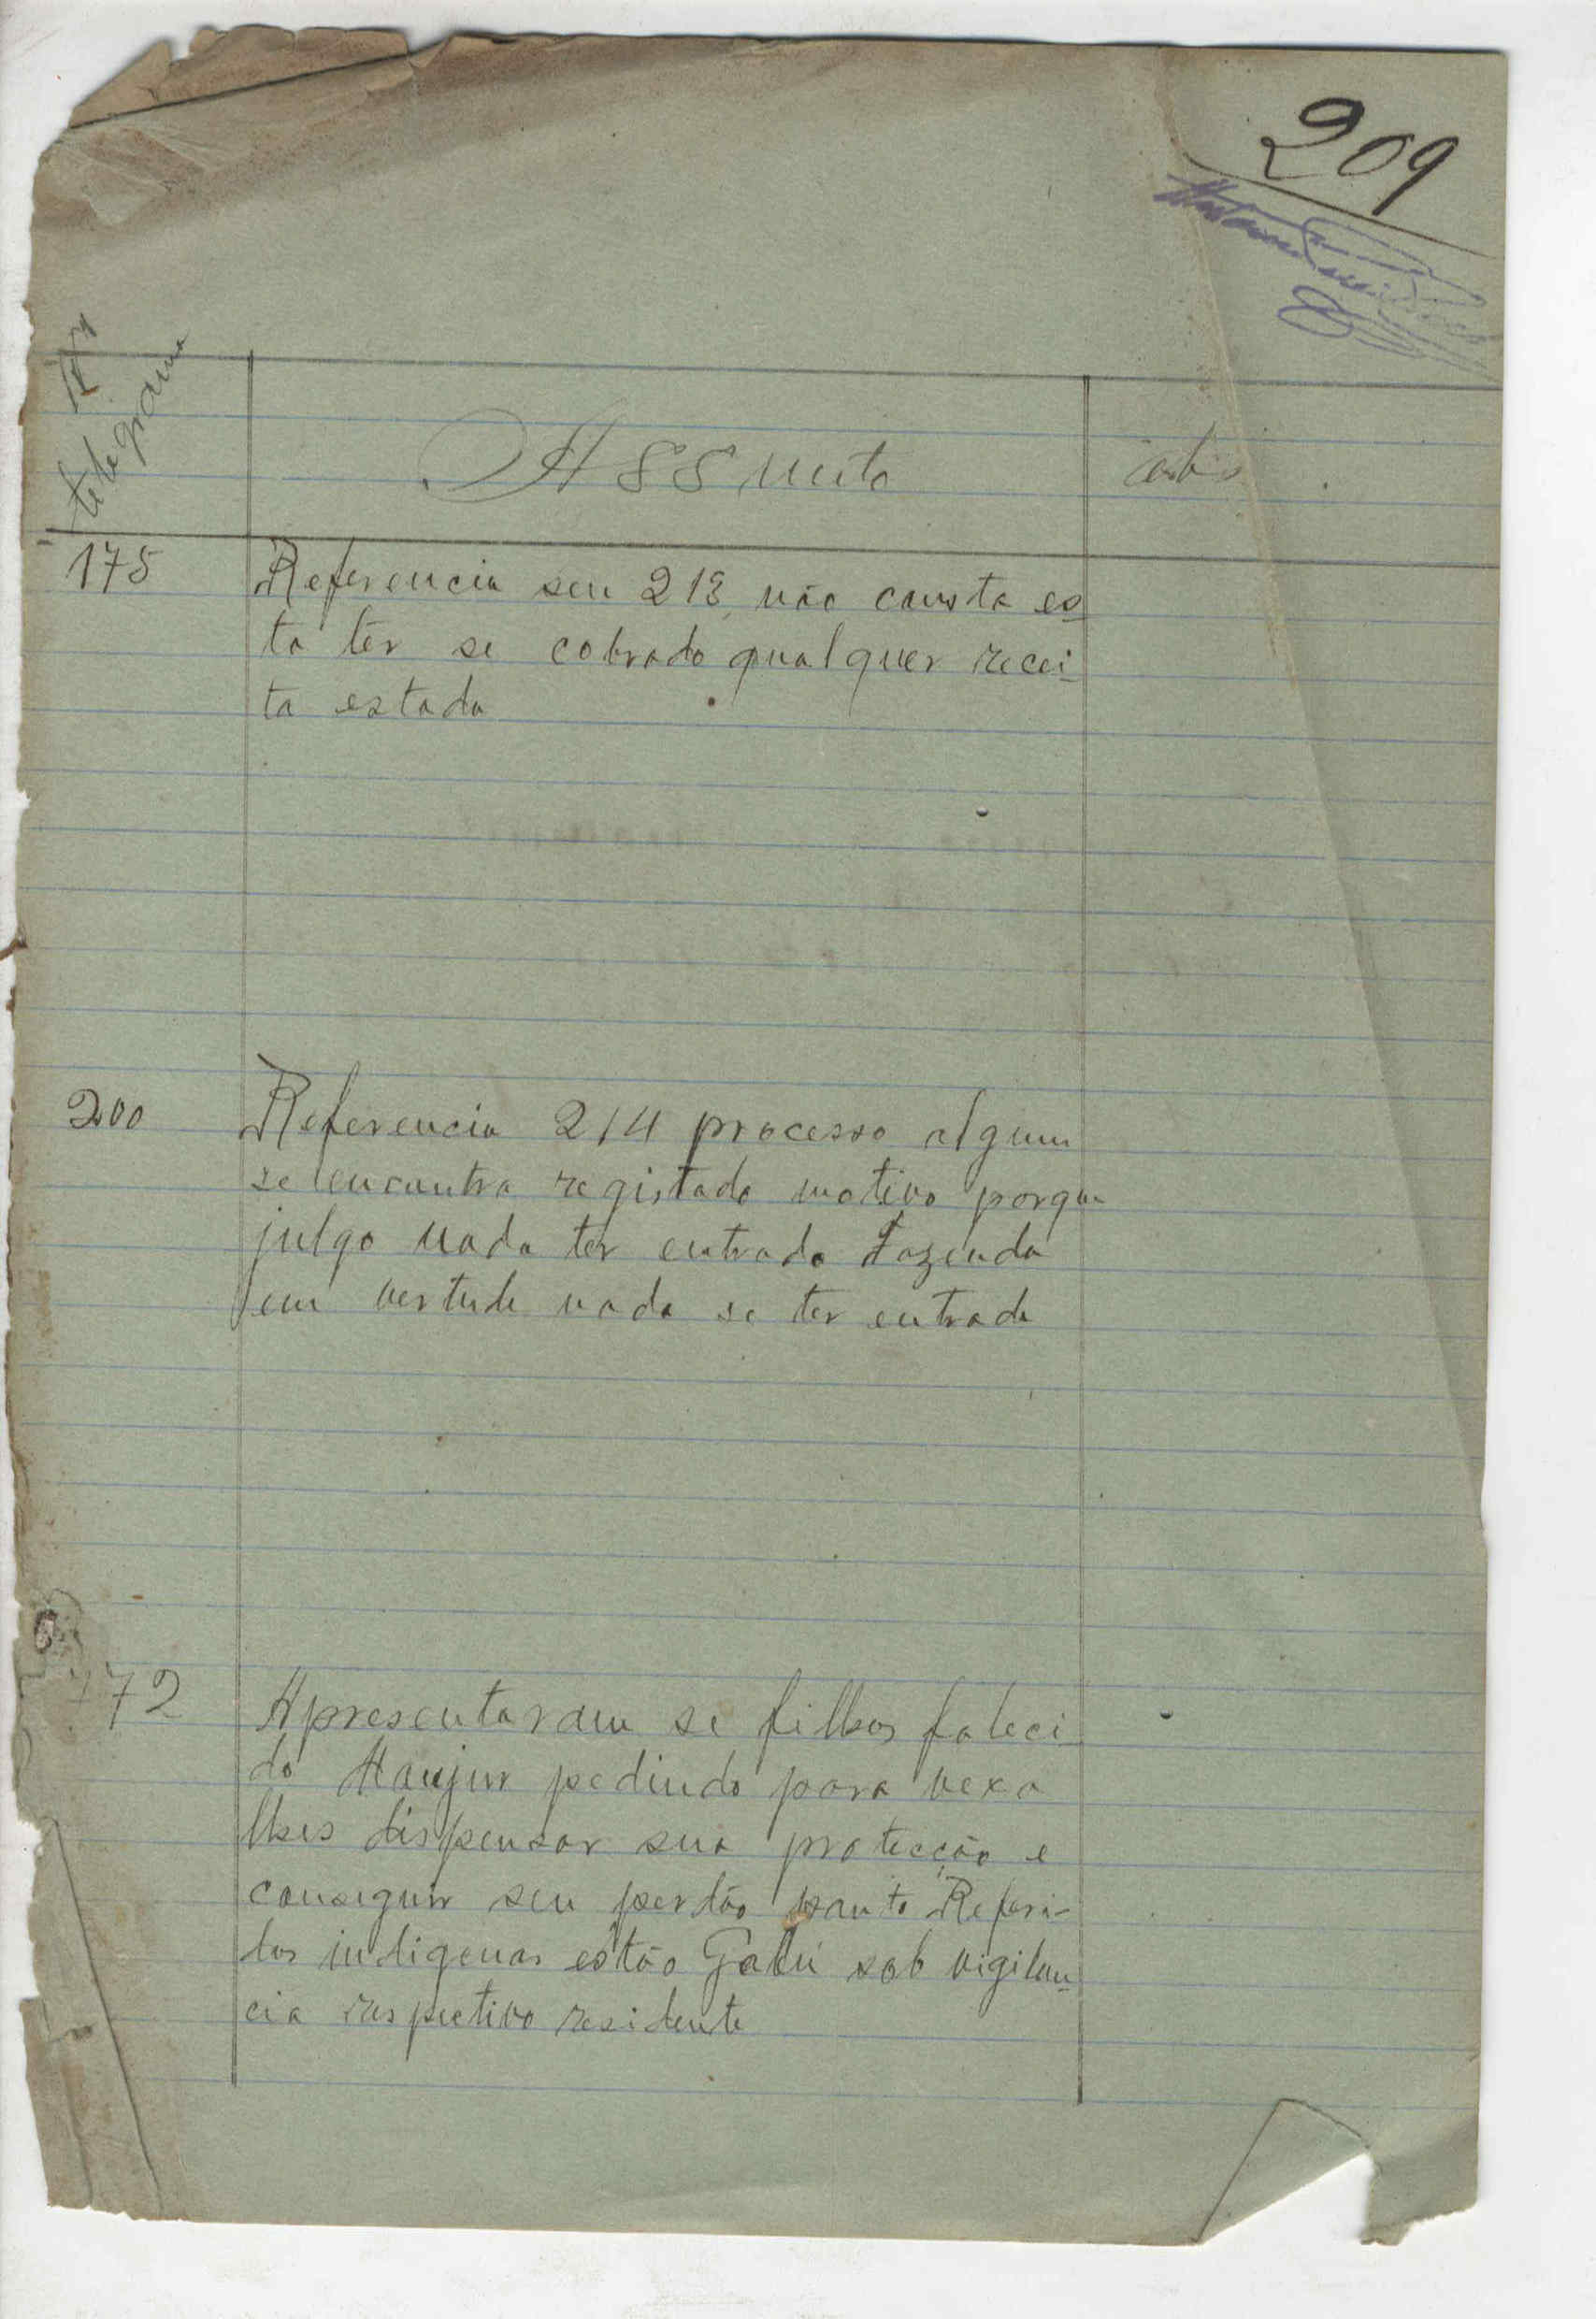 209
telegrama
Assunto
175
Referencia seu 213, não consta es
ta ter se cobrado qualquer recei-
ta estada
200
Referencia 214 processo algum
se encontra registado motivo porque
julgo nada ter entrado Fazenda
em vertude nada se ter entrado
172
Apresentaram se filhos faleci-
do pedindo para vexa
lhes dispensar sua protecção e
conseguir seu perdão Referi-
dos indigenas estão Gabú sob vigilan-
cia respectivo residente